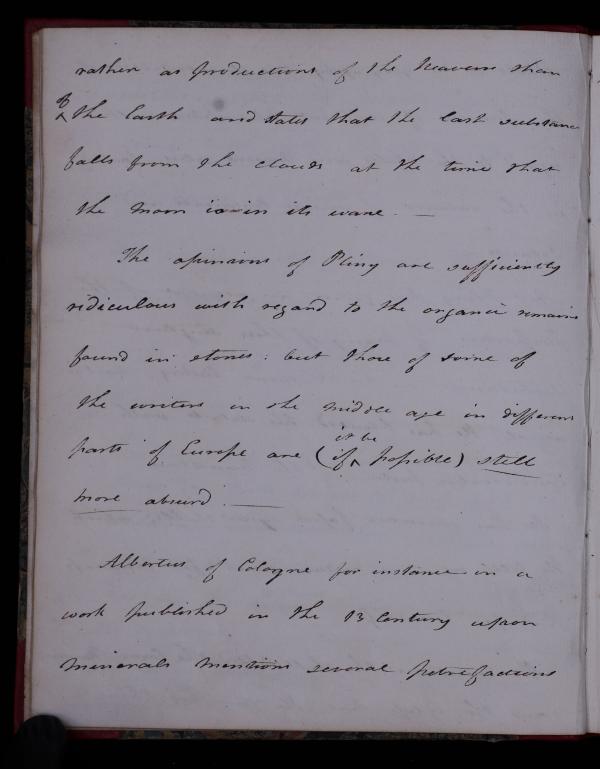 rather as productions of the Heavens than
of the Earth and states that the last substance
falls from the clouds at the time that
the moon is in its wane. —
The opinions of Pliny are sufficiently
ridiculous with regard to the organic remains
found in stones: but those of some of
the writers in the middle age in different
parts of Europe are (if it be possible) still
more absurd. —
Albertus of Cologne for instance in a
work published in the 13 Century upon
minerals mentions several petrefactions